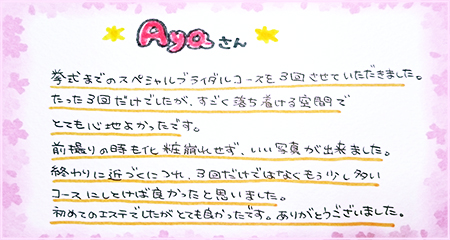 Ayaさん
挙式までのスペシャルブライダルコースを3回させていただきました。
たった3回だけでしたが、すごく落ち着ける空間で
とても心地よかったです。
前撮りの時も化粧崩れせず、いい写真が出来ました。
終わりに近づくにつれ、3回だけではなくもう少し多い
コースにしとけば良かったと思いました。
初めてのエステでしたがとても良かったです。ありがとうございました。